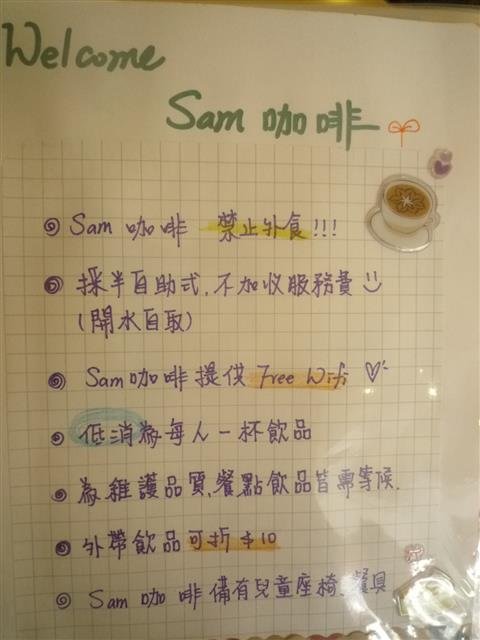 Welcome
Sam 咖啡
Sam 咖啡 禁止外食!!!
採半自助式,不加收服務費
(開水自取)
Sam 咖啡提供 Free Wifi
低消為每人一杯飲品
為維護品質,餐點飲品皆需等候.
外帶飲品可折$10
Sam 咖啡備有兒童座椅、餐具